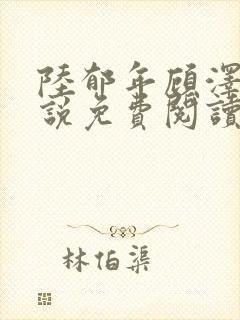 陸郁年顧澤
說免費閱讀
林伯渠